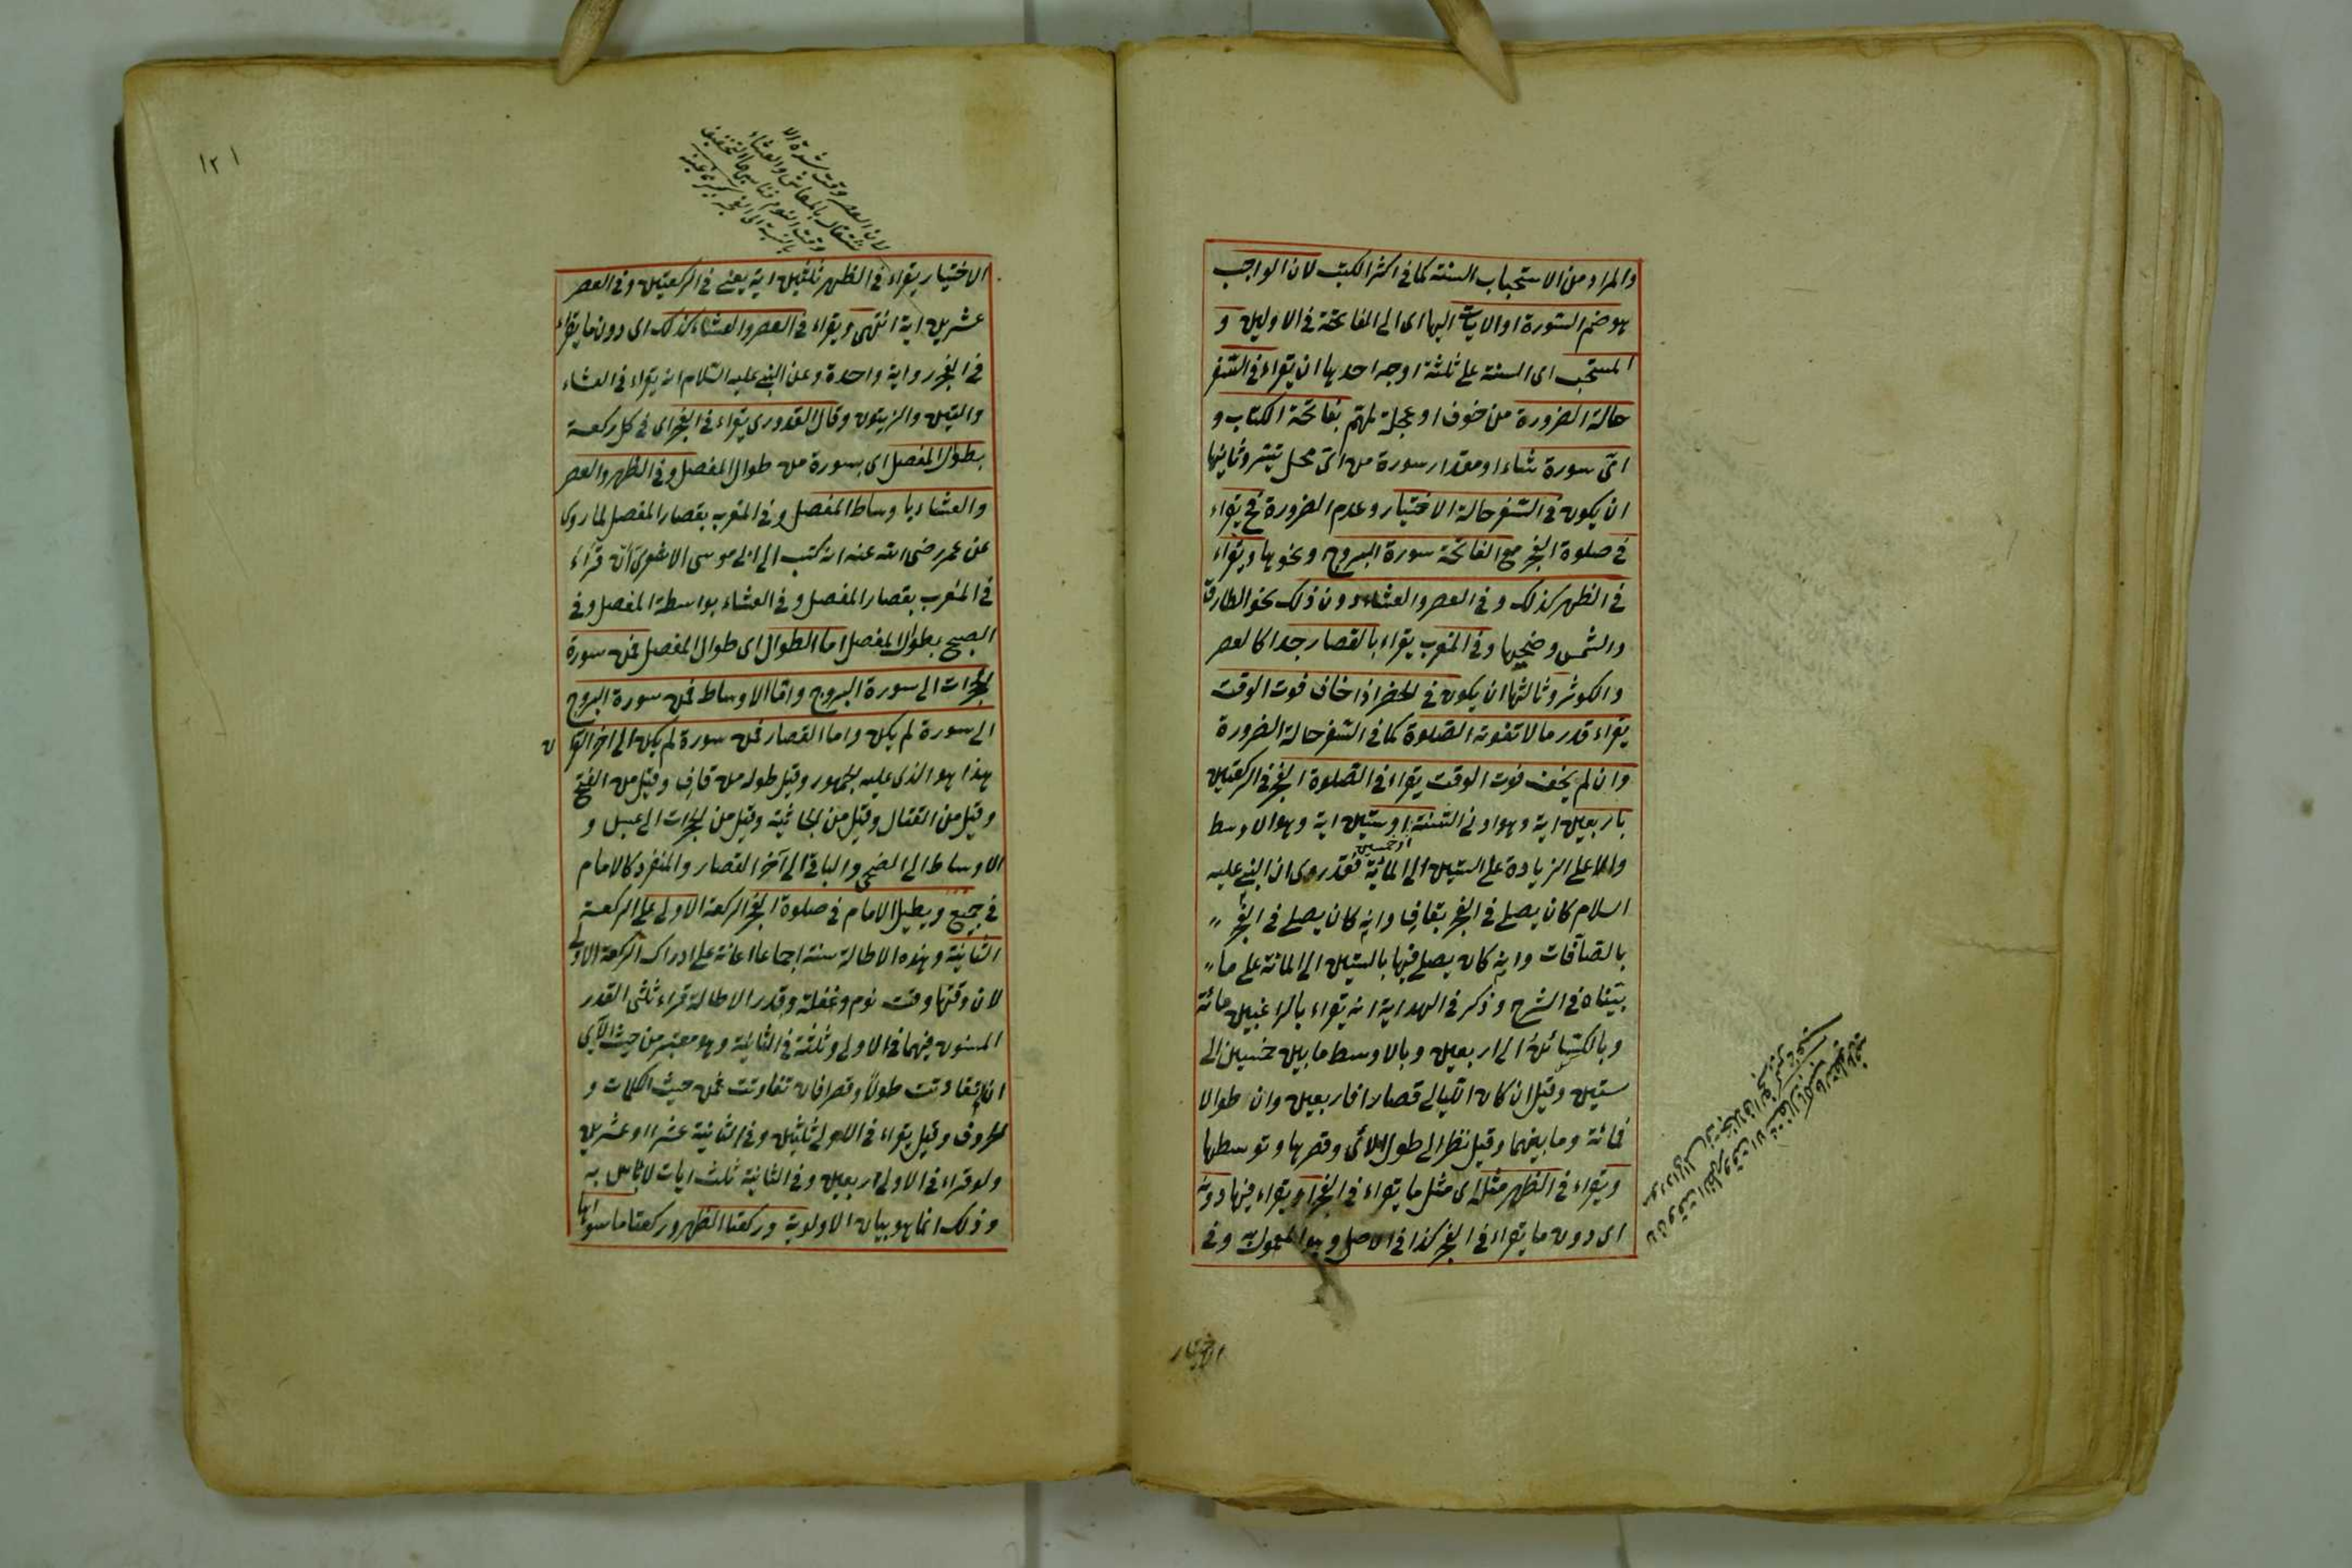 والمراد من الاستحباب السنة كما في اكثر الكتب لان الواجب
هو ضم السورة او الايات اليها اى الى الفاتحة في الاوليين و
المستحب اى السنة على ثلثة اوجه احدها ان يقراء في السفر
حالة الضرورة من خوف او عجلة لمهم بفاتحة الكتاب و
اى سورة شاء او مقدار سورة من اى محل تيسر وثانيها
ان يكون في السفر حالة الاختيار وعدم الضرورة فح يقراء
في صلوة الفجر مع الفاتحة سورة البروج ونحوها ويقراء
في الظهر كذلك وفي العصر والعشاء دون ذلك نحو الطارق
والشمس وضحيها وفي المغرب يقراء بالقصار جدا كالعصر
والكوثر وثالثها ان يكون في الحضر اذا خاف فوت الوقت
يقراء قدر ما لا تفوته الصلوة كما في السفر حالة الضرورة
وان لم يخف فوت الوقت يقراء في الصلوة الفجر في الركعتين
باربعين اية وهو ادنى السنة او ستين اية وهو الاوسط
او خمسين
والاعلى الزيادة على الستين الى المائة فقد روى ان النبي عليه
السلام كان يصلي في الفجر بقاف وانه كان يصلي في الفجر
بالصآفات وانه كان يصلي فيها بالستين الى المائة على ما
بيناه في الشرح وذكر في الهداية انه يقراء بالراغبين مائة
وبالكسائل الى اربعين وبالاوسط ما بين خمسين الى
ستين وقيل ان كان الليالي قصارا فاربعين وان طوالا
فمائة وما بينهما وقيل نظر الى طول الآي وقصرها وتوسطها
ويقراء في الظهر مثله اى مثل ما يقراء في الفجر او يقراء فيها دونه
اى دون ما يقراء في الفجر كذا في الاصل وهو المعمول به وفي
الاختيار
١٢١
لان العصر وقت شدة الا
شتغال بالمعاش والعشاء
وقت النوم فناسبهما التخفيف
بالنسبة الى الفجر
الاختيار يقراء في الظهر ثلثين اية يعني في الركعتين وفي العصر
عشرين اية انتهى ويقراء في العصر والعشاء كذلك اى دون ما يقراء
في الفجر رواية واحدة وعن النبي عليه السلام انه يقراء في العشاء
والتين والزيتون وقال القدورى يقراء في الفجر اى في كل ركعة
بطوال المفصل اى بسورة من طوال المفصل وفي الظهر والعصر
والعشاء باوساط المفصل وفي المغرب بقصار المفصل لما روى
عن عمر رضى الله عنه انه كتب الى ابى موسى الاشعرى ان قراء
في المغرب بقصار المفصل وفي العشاء بواسطة المفصل وفي
الصبح بطوال المفصل اما الطوال اى طوال المفصل فمن سورة
الحجرات الى سورة البروج واما الاوساط فمن سورة البروج
الى سورة لم يكن واما القصار فمن سورة لم يكن الى اخر القرآ ن
هذا هو الذى عليه الجمهور وقيل طوله من قاف وقيل من الفتح
وقيل من القتال وقيل من الجاثية وقيل من الحجرات الى عبس و
الاوساط الى الضحى والباقى الى آخر القصار والمنفرد كالامام
في جميع ويطيل الامام في صلوة الفجر الركعة الاولى على الركعة
الثانية وهذه الاطالة سنة اجماعا اعانة على ادراك الركعة الاولى
لان وقتها وقت نوم وغفلة وقدر الاطالة قراءة ثلثى القدر
المسنون فيهما في الاولى وثلثه في الثانية وهو معتبر من حيث الآى
ان تفاوتت طولا وقصرا فان تفاوتت فمن حيث الكلمات و
الحروف وقيل يقراء في الاولى ثلثين وفي الثانية عشرا او عشرين
ولو قراء في الاولى اربعين وفي الثانية ثلث ايات لا باس به
وذلك انما هو بيان الاولوية وركعتا الظهر وركعتا ما سواها